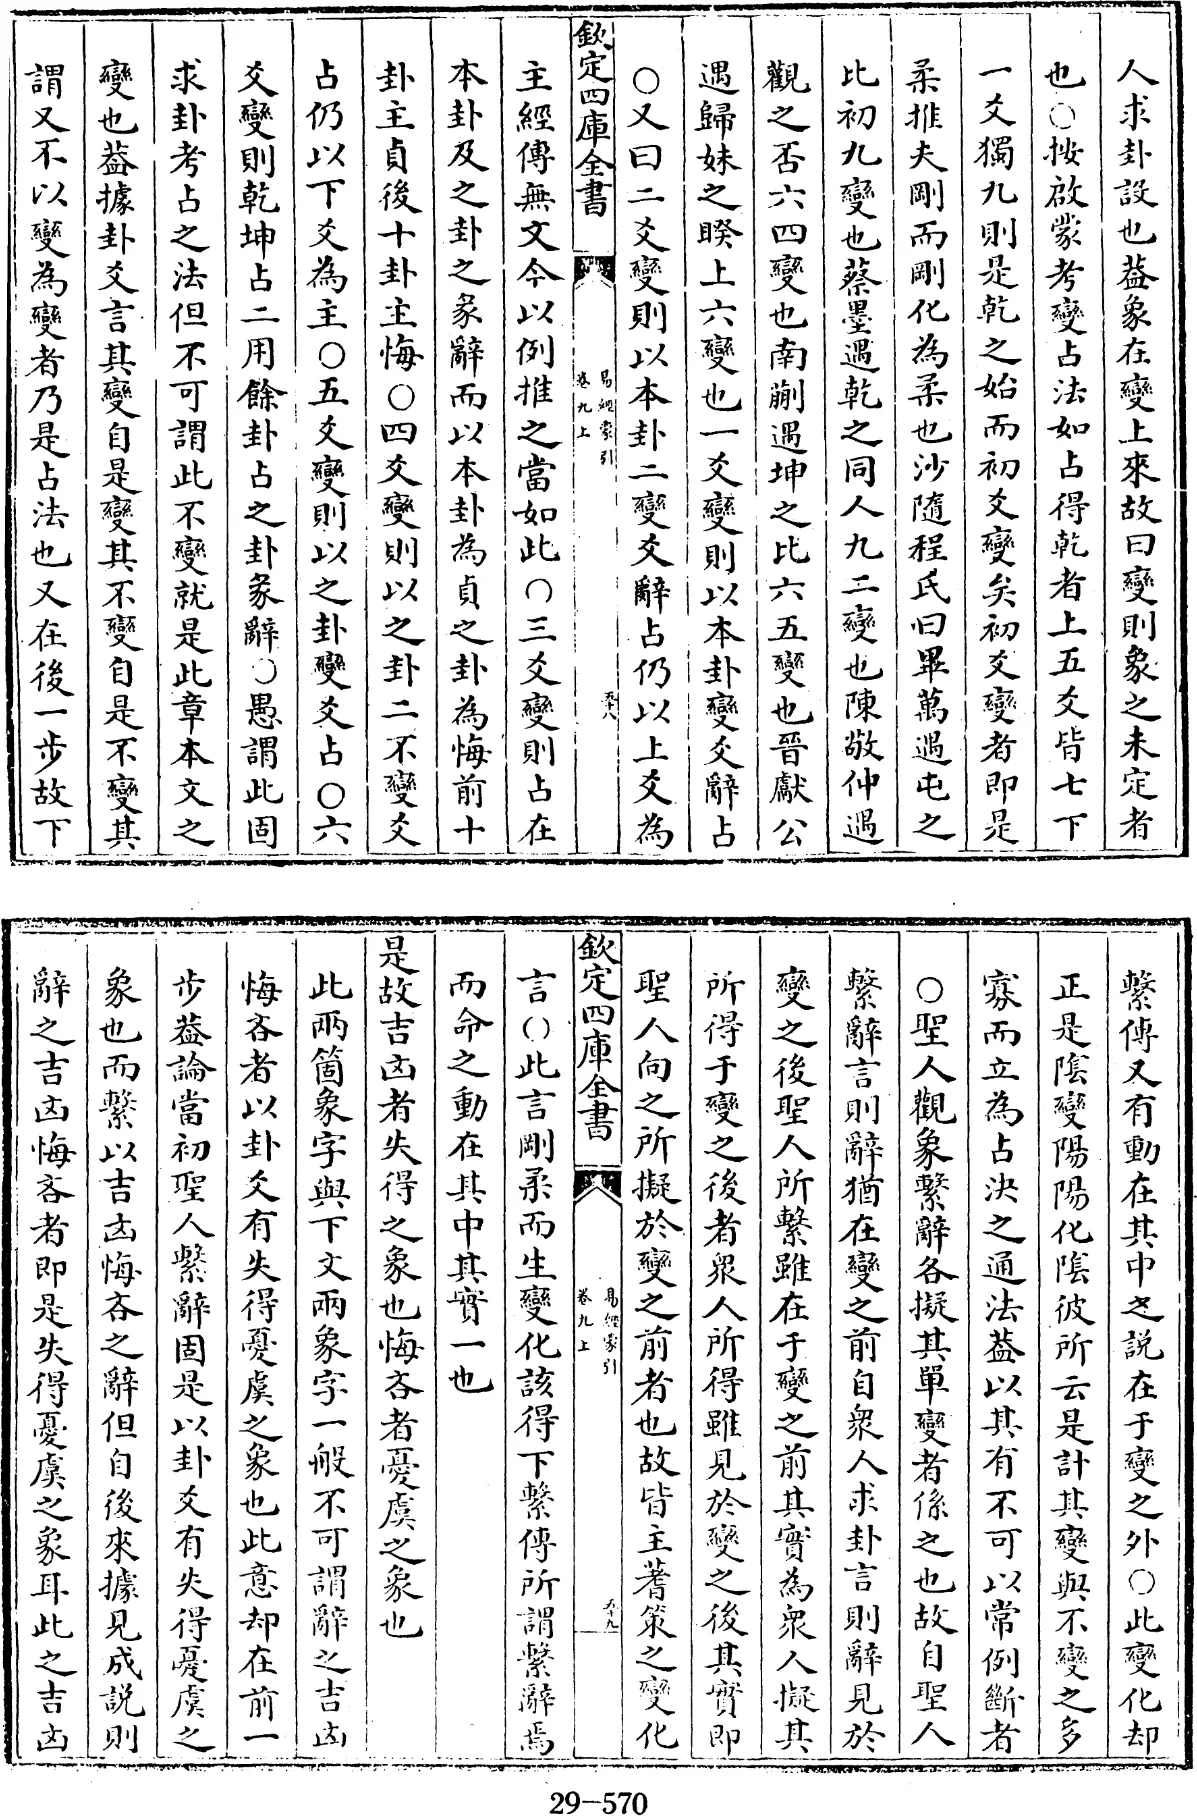 人求卦設也葢象在變上來故曰變則象之未定者
也○按啟蒙考變占法如占得乾者上五爻皆七下
一爻獨九則是乾之始而初爻變矣初爻變者即是
柔推夫剛而剛化為柔也沙隨程氏曰畢萬遇屯之
比初九變也蔡墨遇乾之同人九二變也陳敬仲遇
觀之否六四變也南蒯遇坤之比六五變也晉獻公
遇歸妹之睽上六變也一爻變則以本卦變爻辭占
○又曰二爻變則以本卦二變爻辭占仍以上爻為
欽定四庫全書
易經蒙引
卷九上
五十八
主經傳無文今以例推之當如此○三爻變則占在
本卦及之卦之彖辭而以本卦為貞之卦為悔前十
卦主貞後十卦主悔○四爻變則以之卦二不變爻
占仍以下爻為主○五爻變則以之卦變爻占○六
爻變則乾坤占二用餘卦占之卦彖辭○愚謂此固
求卦考占之法但不可謂此不變就是此章本文之
變也葢據卦爻言其變自是變其不變自是不變其
謂又不以變為變者乃是占法也又在後一步故下
繫傳又有動在其中之說在于變之外○此變化却
正是陰變陽陽化陰彼所云是計其變與不變之多
寡而立為占決之通法葢以其有不可以常例斷者
○聖人觀象繫辭各擬其單變者係之也故自聖人
繫辭言則辭猶在變之前自衆人求卦言則辭見於
變之後聖人所繫雖在于變之前其實為衆人擬其
所得于變之後者衆人所得雖見於變之後其實即
聖人向之所擬於變之前者也故皆主蓍策之變化
欽定四庫全書
易經蒙引
卷九上
五十九
言○此言剛柔而生變化該得下繫傳所謂繫辭焉
而命之動在其中其實一也
是故吉凶者失得之象也悔吝者憂虞之象也
此兩箇象字與下文兩象字一般不可謂辭之吉凶
悔吝者以卦爻有失得憂虞之象也此意却在前一
步葢論當初聖人繫辭固是以卦爻有失得憂虞之
象也而繫以吉凶悔吝之辭但自後來據見成說則
辭之吉凶悔吝者即是失得憂虞之象耳此之吉凶
29-570